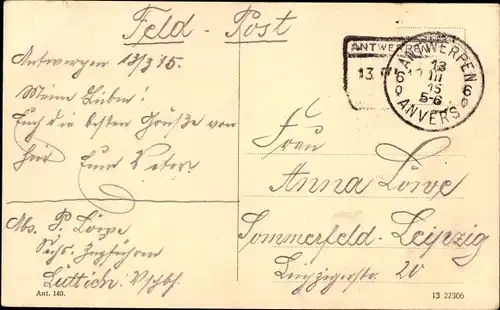 Feld-Post
Antwerpen 13/3 15.
Meine Lieben!
Euch die besten Grüße von
hier Euer Vater.
Abs. P. Löwe
Zugführer
Lüttich
Ant. 140.
ANTWERPEN
13 III
ANTWERPEN
6 6
13
III
15
5-6
ANVERS
Frau
Anna Löwe
Sommerfeld-Leipzig
Leipzigerstr. 20
13 22306